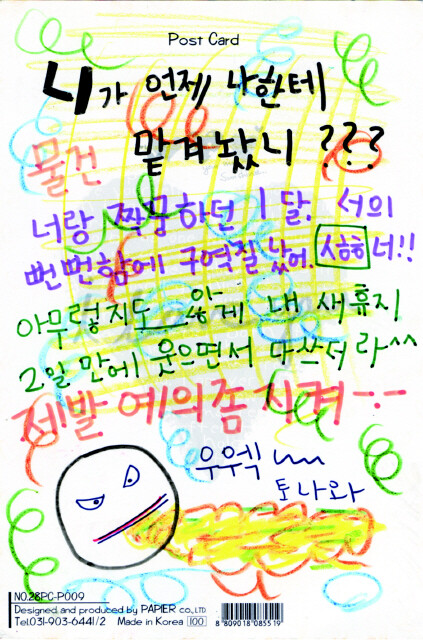 Post Card
니가 언제 나한테
물건 맡겨놨니 ???
너랑 짝궁하던 1달. 너의
뻔뻔함에 구역질 났어. 너!!
아무렇지도 않게 내 새휴지
2일 만에 웃으면서 다쓰더라^^
제발 예의좀 지켜 --
우웩 ~~
토나와
NO.28PC-P009
Designed and produced by PAPIER co., LTD
Tel.031-903-6441/2 Made in Korea 100
8 809018 085519